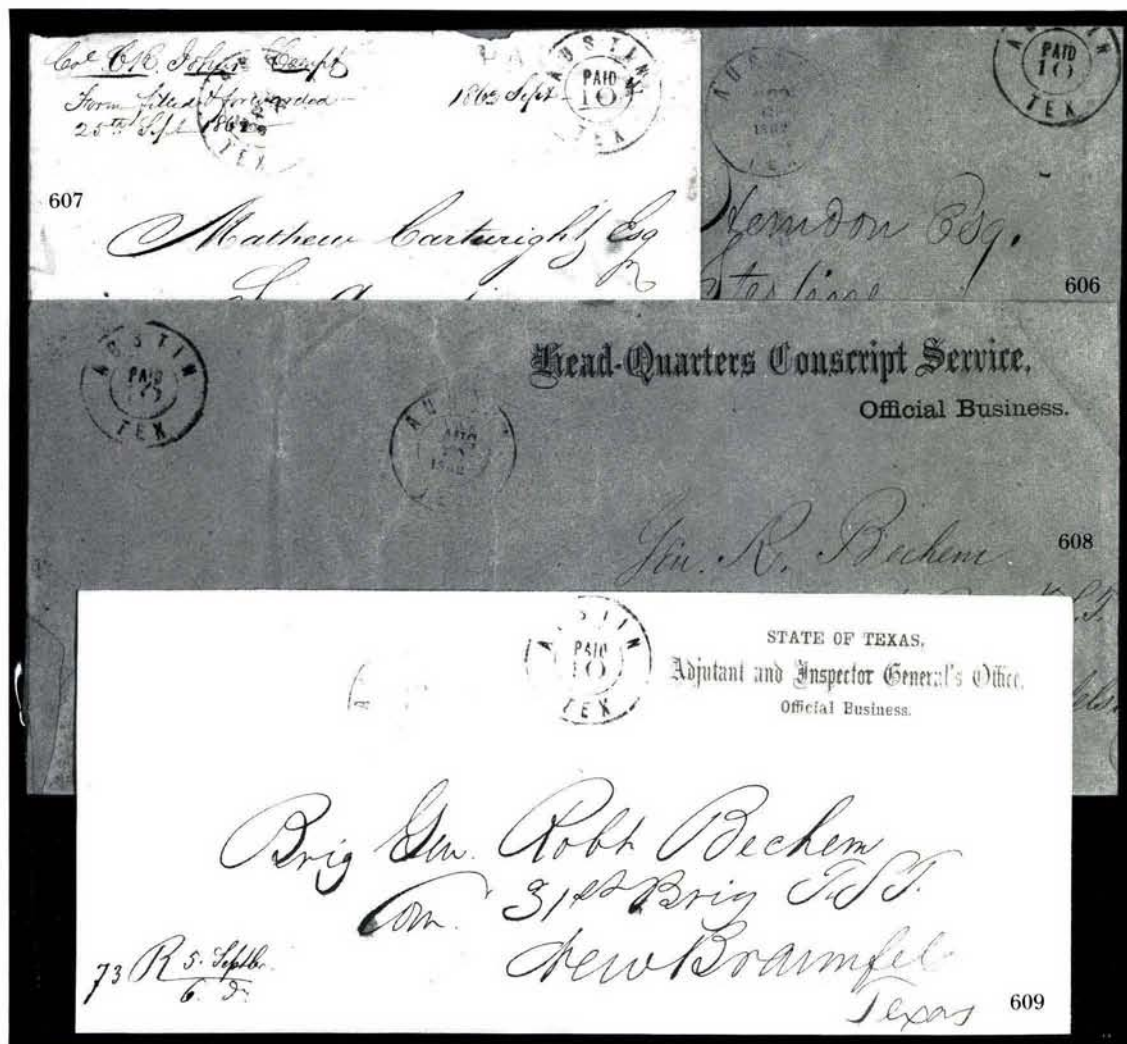 Col. C.R. Johns Compt
Form filled & forwarded
25th Sept 1863
1863 Sept
TEX
PAID
AUSTIN
PAID
10
TEX
607
Mathew Cartwright Esq
AUSTIN
PAID
10
TEX
AUS
1862
TEX
Herndon Esq.
606
AUSTIN
PAID
10
TEX
AUS
AUG
1862
Head-Quarters Conscript Service,
Official Business.
Gen. R. Bechem
608
AUSTIN
PAID
10
TEX
STATE OF TEXAS,
Adjutant and Inspector General's Office,
Official Business.
Brig Gen. Robt Bechem
Com. 31st Brig T.S.T.
New Braunfels
Texas
73 R 5. Septb.
609